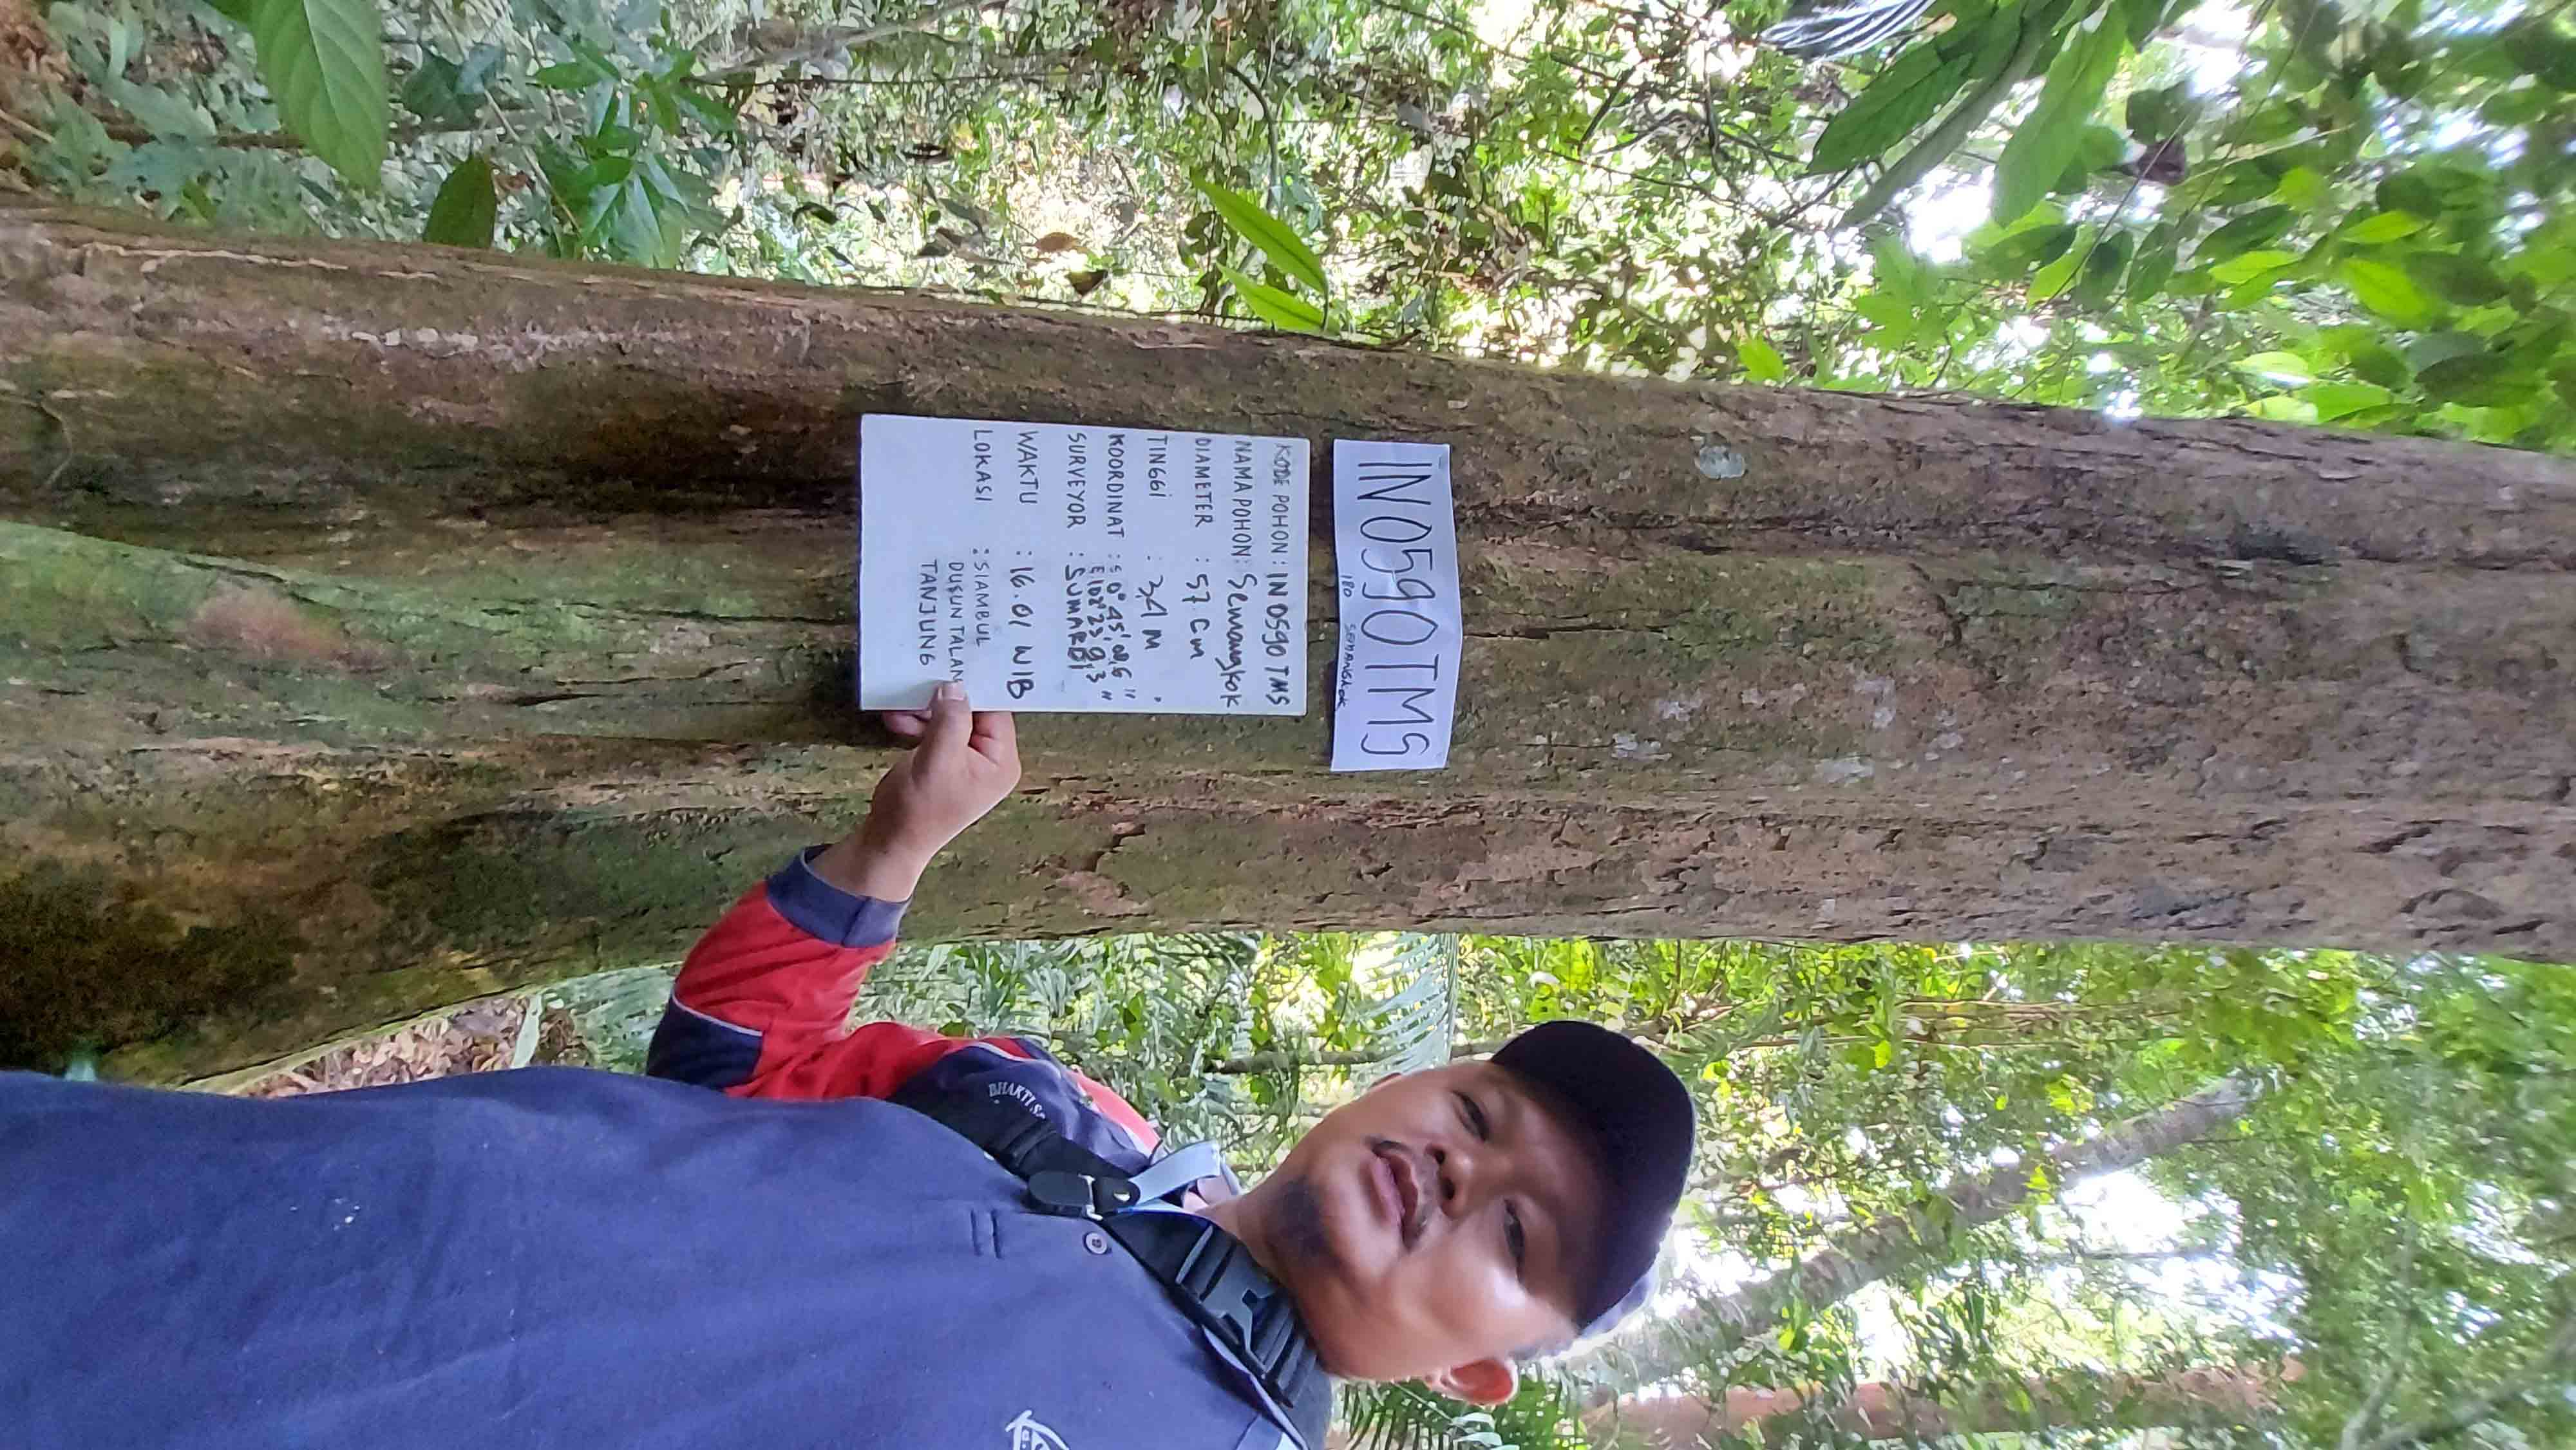 IN0590TMS
180 SEMANGKOK
KODE POHON : IN 0590 TMS
NAMA POHON : Semangkok
DIAMETER : 57 Cm
TINGGI : 34 M
KOORDINAT : S 0° 45' 08,6 "
E 102° 23' 9,3 "
SURVEYOR : SUMARDI
WAKTU : 16.01 WIB
LOKASI : SIAMBUL
DUSUN TALAN
TANJUNG
BHAKTI